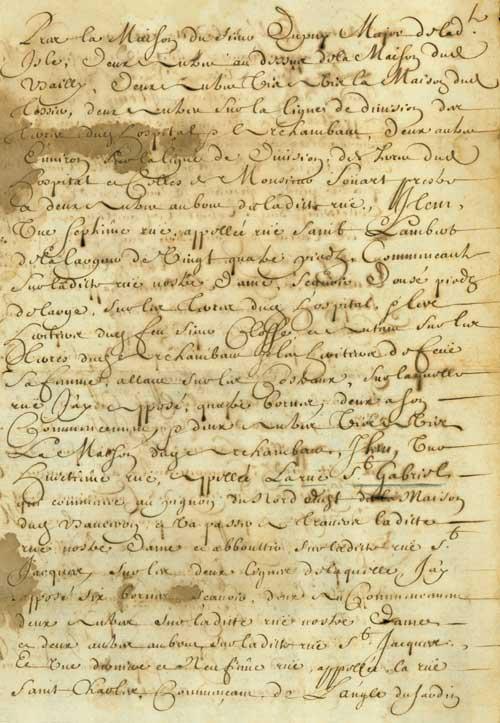 Pres la Maison du Sieur Dupuy Major de lad.
Isle, deux autres au dessus de la Maison dud
Bailly, deux autres vis a vis la Maison dud
Tessier, deux autres sur la ligne de division des
terres dud hospital & Archambault, deux autres
Environ sur la ligne de Division, des terres dud
hospital et Celles de Monsieur Souart prestre
Et deux autres au bout de la ditte rüe, Item,
Une septiême rüe, appellée rüe Saint Lambert
de la largeur de Vingt quatre pieds, Commencant
sur laditte rüe nostre Dame, sçavoir Douse pieds
de large, sur les terres dud hospital, & les
heritiers du feu Sieur Closse, et autant sur les
terres dud Archambault
sa femme, allant sur les Costeaux, sur laquelle
rüe J'ay apposé, quatre bornes, deux a son
Commencement, & deux autres Vis a Vis
La Maison dud Archambault, Item, Une
Huictiême rüe, Appellée La rüe St Gabriel
qui commence au pignon du Nord de la Maison
dud et Va passer a travers laditte
rüe nostre Dame et abboutir sur laditte rüe St
Jacques, sur les deux lignes de laquelle, J'ay
apposé six bornes sçavoir, deux au Commencement
deux autres sur laditte rüe nostre Dame
et deux autres au bout, sur laditte rüe St Jacques.
Et Une derniere et Neufiême rüe, appellée la rüe
Saint Charles, Commençant, de L'angle du Jardin